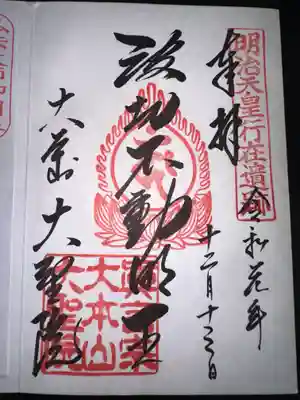 明治天皇行在遺跡
奉拝
令和元年
十二月十三日
波切不動明王
大本山 大聖院
真言宗
大本山
大聖院